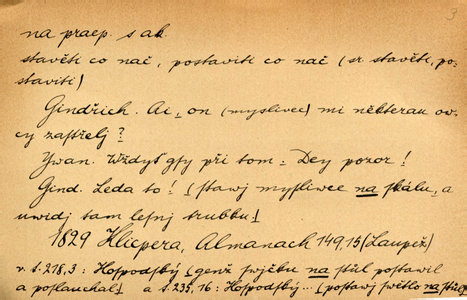 3
na praep. s ak
stavěti co nač, postaviti co nač (sr. stavěti, po-
staviti)
Gindřich. Ai, on (myslivec) mi některau ov-
cy zastřelj?
Ywan. Wždyť gsy při tom. Dey pozor!
Gind. Leda to! (stawj myslivce na skálu, a
uwidj tam lesnj trubku)
1829 Klicpera, Almanach 149,15 (Laupež)
v. t. 218,3: Hospodský (genž swjčku na stůl postawil
a poslauchal) a t. 235,16: Hospodský... (postawj swětlo na stůl)